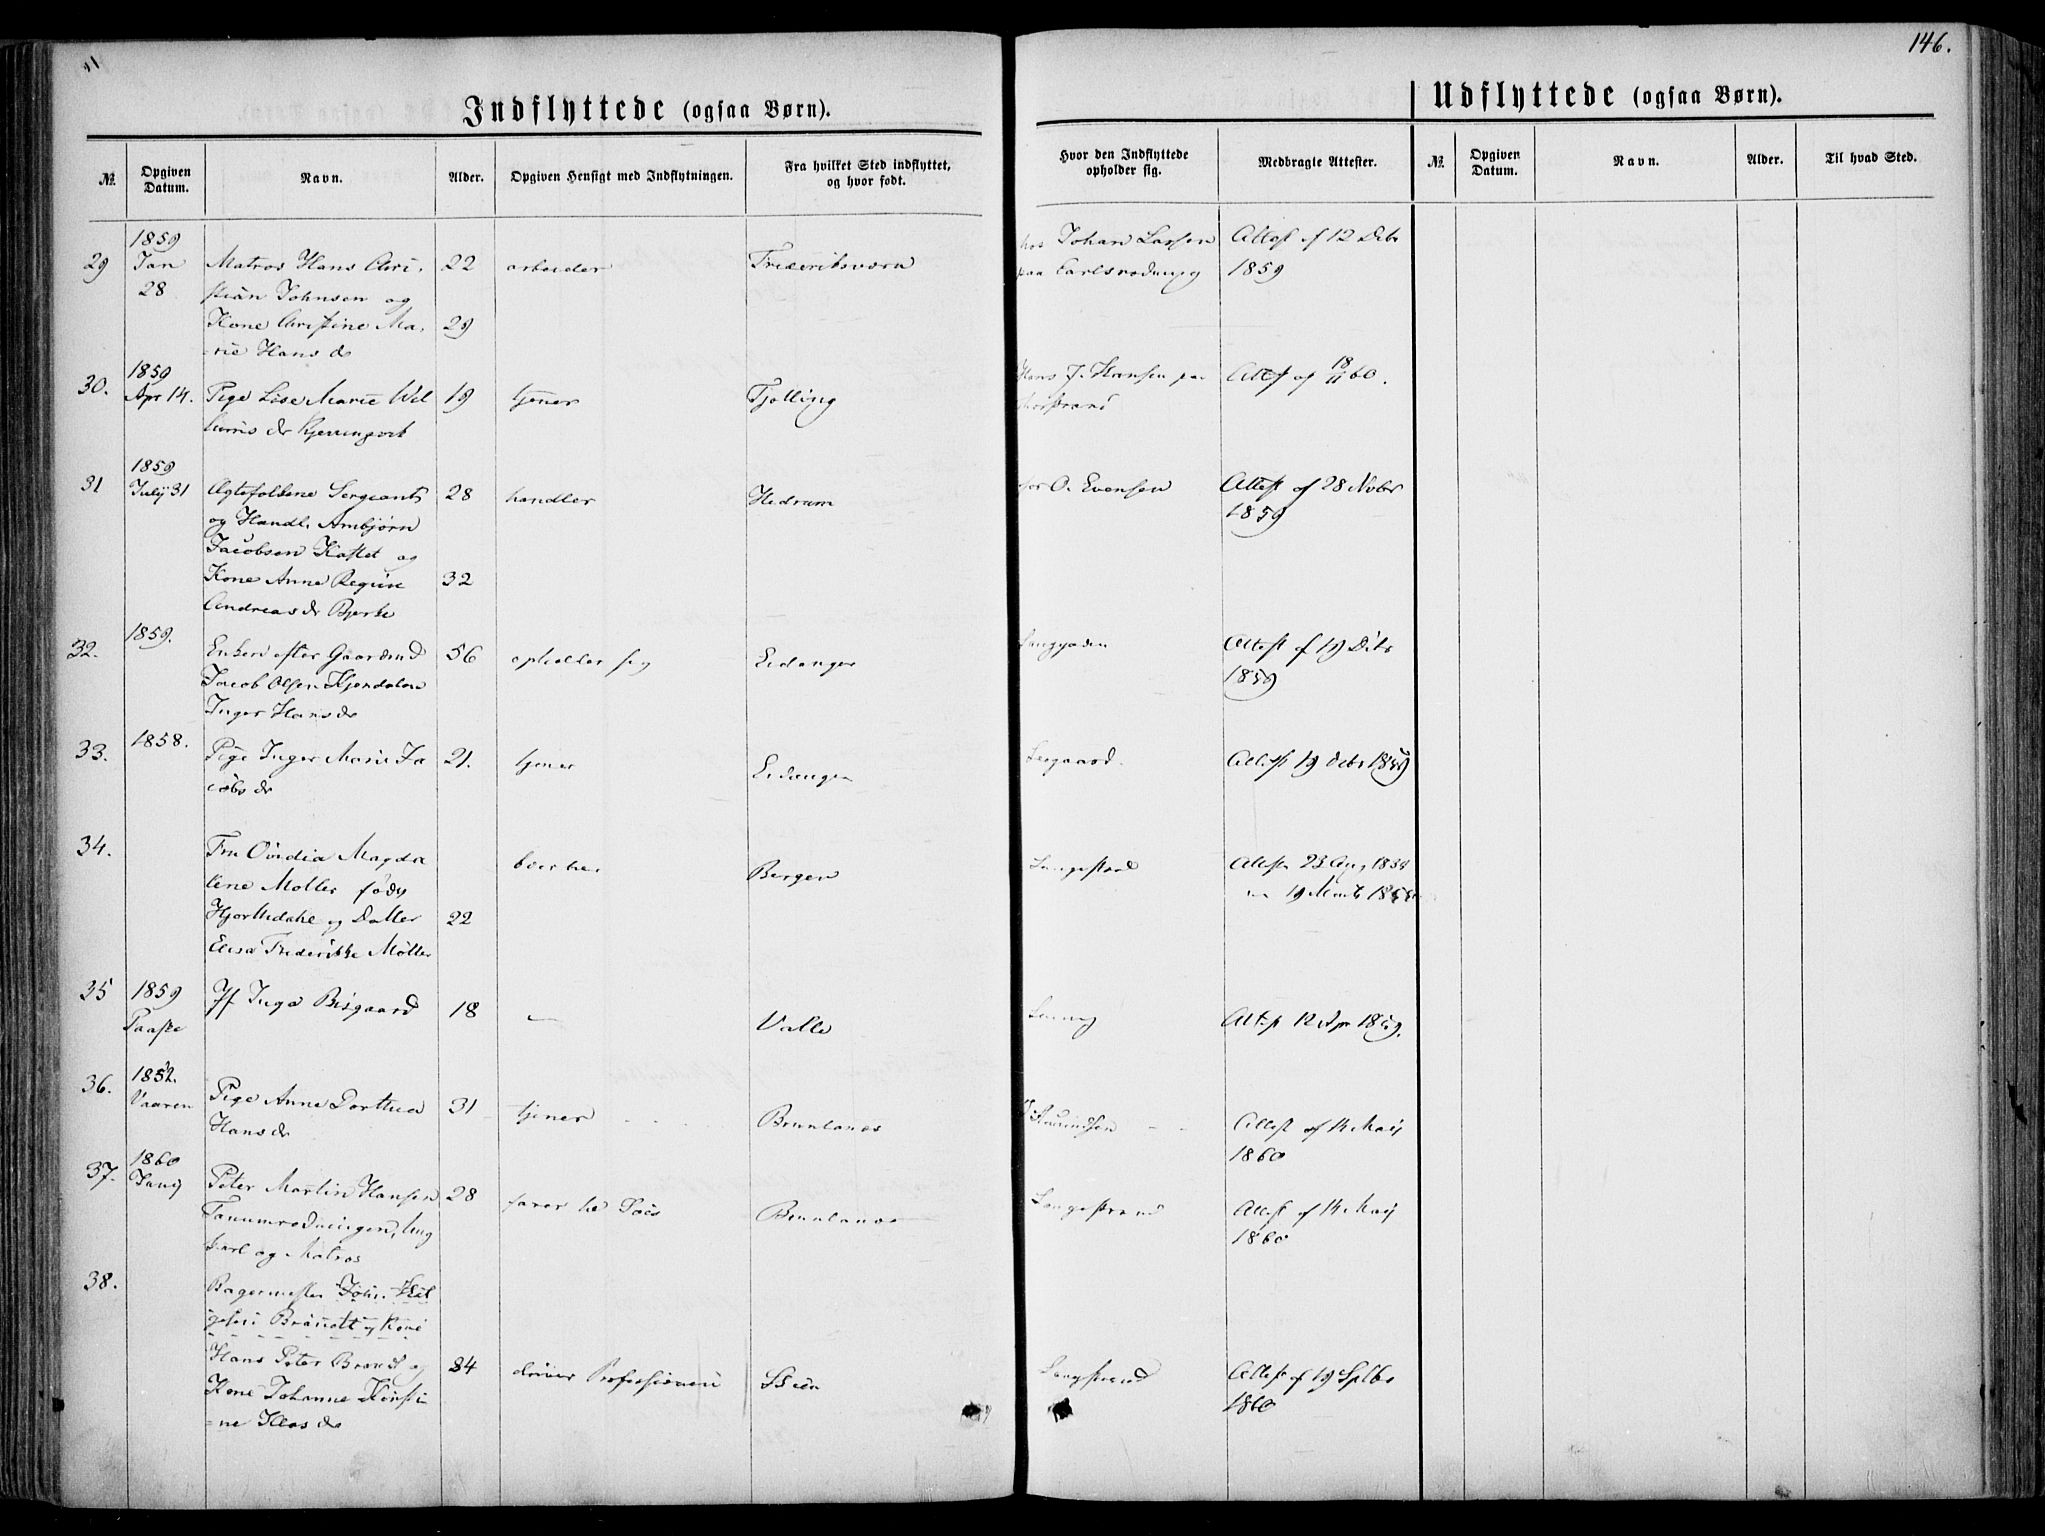 146.
Indflyttede (ogsaa Børn).
Udflyttede (ogsaa Børn).
№.
Opgiven Datum.
Navn.
Alder.
Opgiven Hensigt med Indflytningen.
Fra hvilket Sted indflyttet, og hvor født.
Hvor den Indflyttede opholder sig.
Medbragte Attester.
№.
Opgiven Datum.
Navn.
Alder.
Til hvad Sted.
29
1859
Jan
28
Matros Hans Chri-
stian Johnsen og
Kone Christine Ma-
rie Hansdr
22
29
arbeider
Frederiksværn
hos Johan Larsen
paa
Attest af 12 Debr
1859
30.
1859
Apr 14.
Pige Lise Marie Wil
19
tjener
Tjølling
Hans J. Hansen paa
Attest af 18/11 60.
31
1859
July 31
Ægtefolkene Sergeant
og Handl. Ambjørn
Jacobsen Haslet og
Kone Anne Regine
Andreasdr Bjerke
28
32
handler
Hedrum
hos O. Evensen
Attest af 28 Nvbr
1859
32.
1859.
Enken efter Gaardmd
Jacob Olsen Kjendalen
Inger Hansdr
56
opholder sig
Eidanger
Langgaden
Attest af 19 Debr
1859
33.
1858.
Pige Inger Marie Ja
cobsdr
21.
tjener
Eidanger
Attest 19 debr 1859
34.
Fru Magda
lene Møller født
Hjorthdahl og Datter
Elisa Frederikke Møller
22
boer her
Bergen
Attest 23 Aug 1858
19 1858
35
1859
Paaske
Jf Inga Bisgaard
18
—
Valle
Attest 12 Apr 1859.
36.
1852.
Vaaren
Pige Anne Dorthea
Hansdr
31
tjener
Brunlanes
Amundsen
Attest af 14 Maij
1860
37.
1860
Peter Martin Hansen
Tanumrødningen, Ung
karl og Matros
28
farer til Søes
Brunlanes
Langestrand
Attest af 14 Maij
1860
38.
Bagermester
Brandt og Kone
Hans Peter Brandt og
Kone Johanne Kirsti
ne Klasdr
34
driver Professionen
Skien
Langestrand
Attest af 19 Sptbr
1860